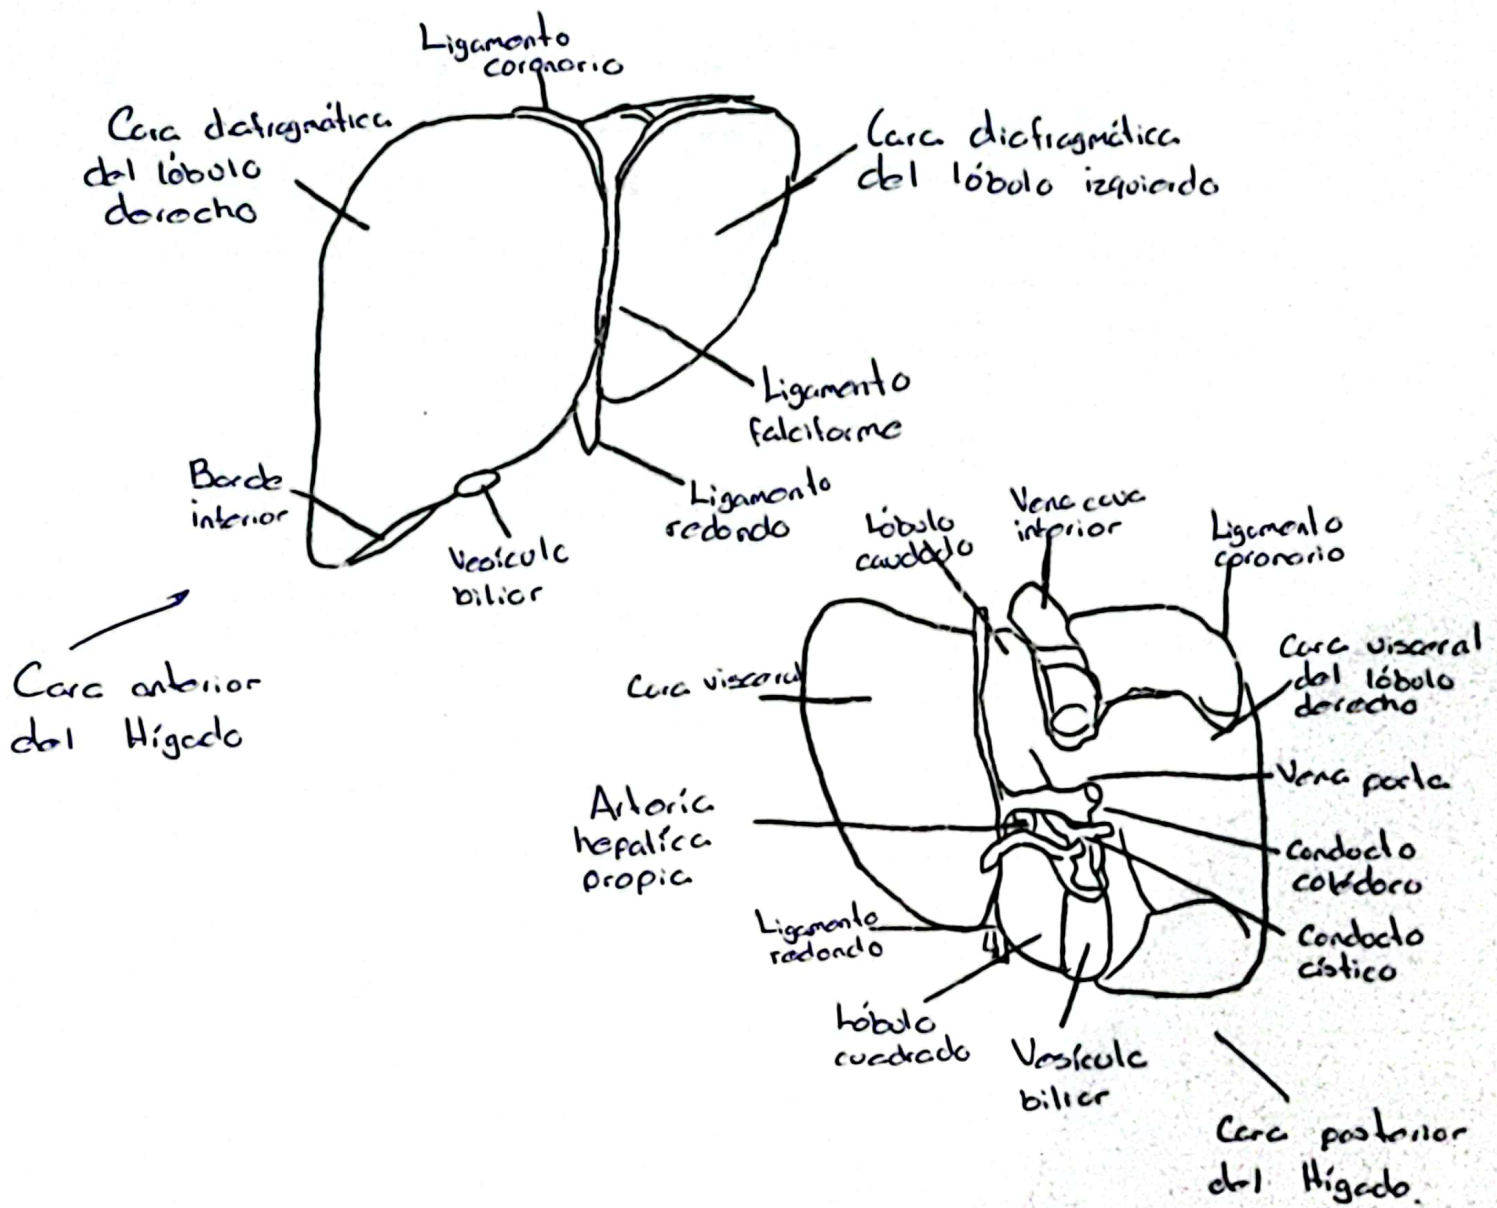 Ligamento
coronario
Cara dafragmática
del lóbulo
derecho
Cara diafragmática
del lóbulo izquierdo
Ligamento
falciforme
Borde
inferior
Ligamento
redondo
Vesícula
biliar
Cara anterior
del Hígado
Lóbulo
caudado
Vena cava
inferior
Ligamento
coronario
Cara visceral
Cara visceral
del lóbulo
derecho
Vena porta
Arteria
hepática
propia
Conducto
colédoco
Ligamento
redondo
Conducto
cístico
Lóbulo
cuadrado
Vesícula
biliar
Cara posterior
del Hígado.